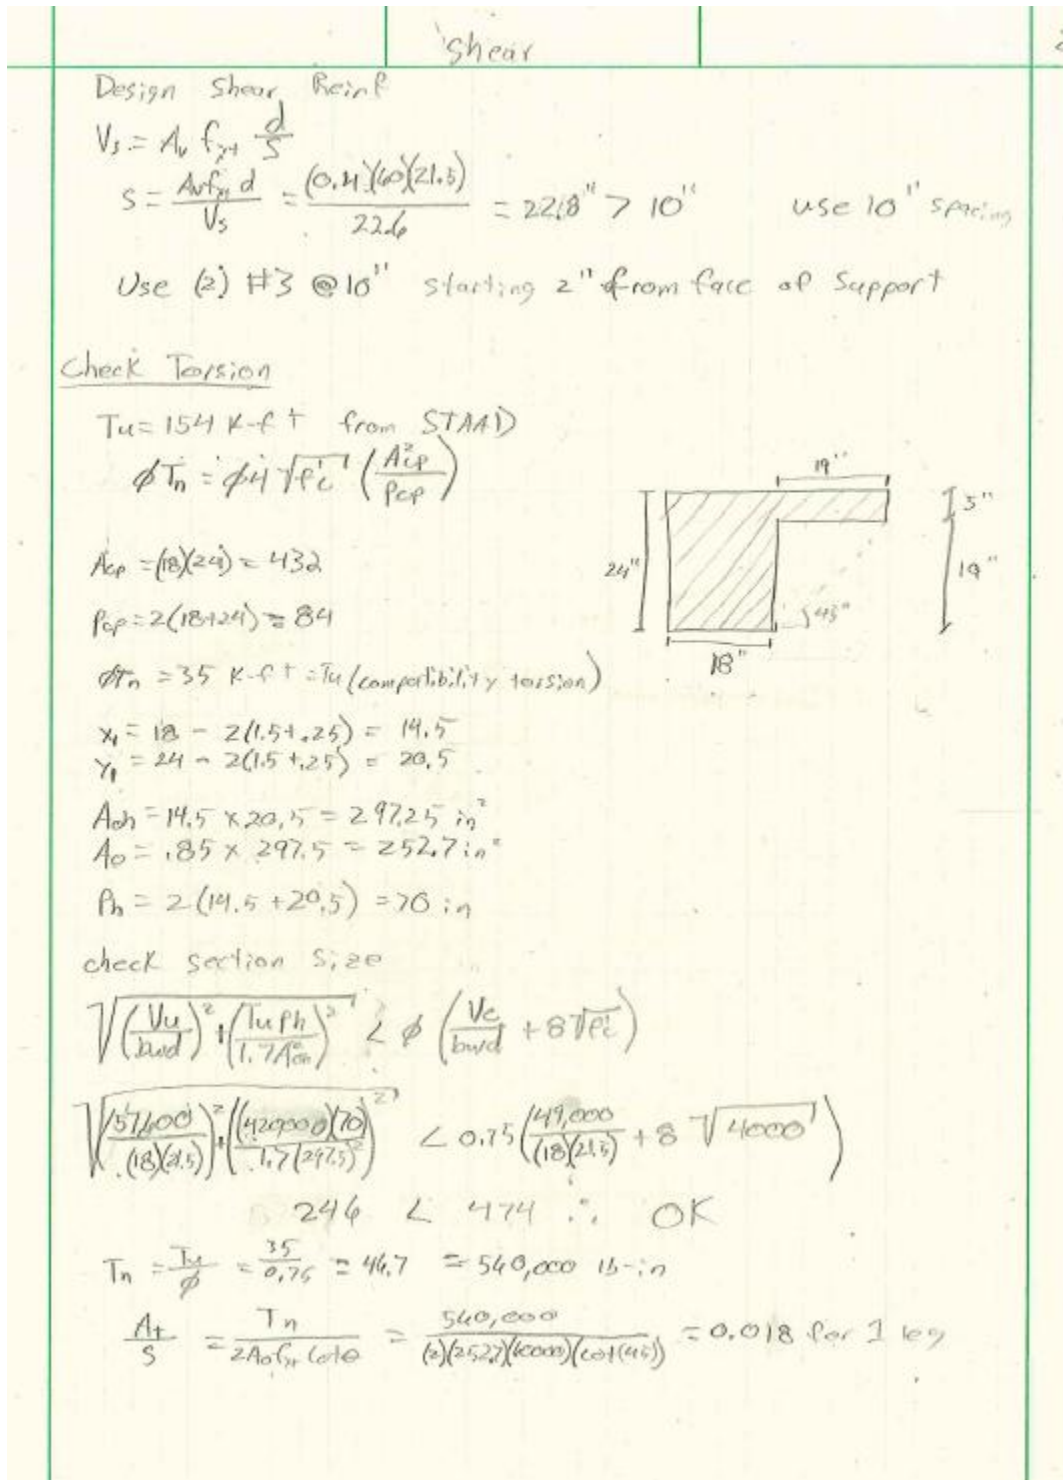 Shear
2
Design Shear Reinf
Vs = Av fyt d/s
s = Avfyt d/Vs = (0.4)(60)(21.5)/22.6 = 22.8" > 10" use 10" spacing
Use (2) #3 @10" starting 2" from face of Support
Check Torsion
Tu = 154 K-ft from STAAD
φTn = φ4√f'c (A²cp/Pcp)
19"
5"
24"
19"
18"
Acp = (18)(24) = 432
Pcp = 2(18+24) = 84
φTn = 35 K-ft = Tu (compatibility torsion)
x₁ = 18 - 2(1.5+.25) = 14.5
y₁ = 24 - 2(1.5+.25) = 20.5
Aoh = 14.5 x 20.5 = 297.25 in²
Ao = .85 x 297.5 = 252.7 in²
Ph = 2(14.5+20.5) = 70 in
check section size
√((Vu/bwd)² + (TuPh/1.7A²oh)²) < φ (Vc/bwd + 8√f'c)
√((57600/(18)(21.5))² + ((420000)(70)/1.7(297.5)²)²) < 0.75(49,000/(18)(21.5) + 8√4000)
246 < 474 ∴ OK
Tn = Tu/φ = 35/0.75 = 46.7 = 560,000 lb-in
At/s = Tn/2Aofyt cotθ = 560,000/(2)(252.7)(60000)(cot(45)) = 0.018 for 1 leg